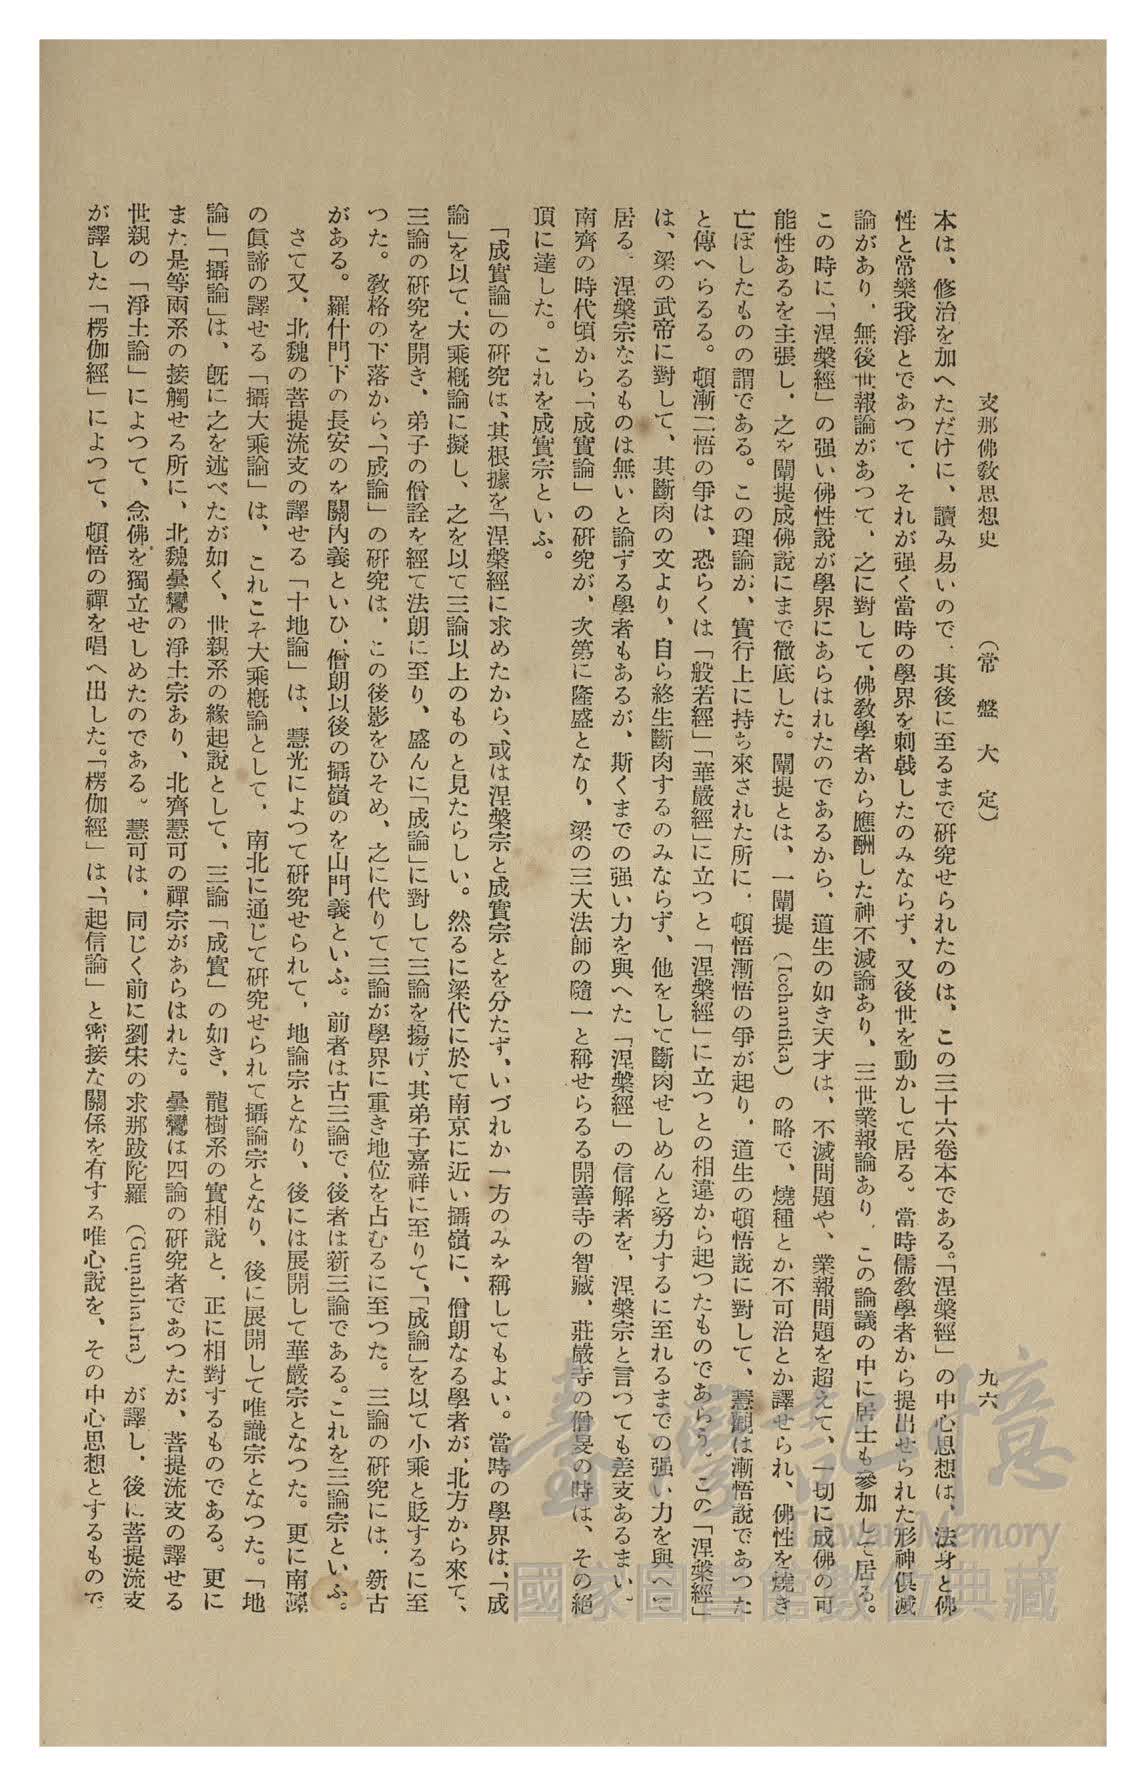 支那佛敎思想史　(常盤大定)　九六
本は、修治を加へただけに、讀み易いので、其後に至るまで硏究せられたのは、この三十六卷本である。「涅槃經」の中心思想は、法身と佛
性と常樂我淨とであつて、それが强く當時の學界を刺戟したのみならず、又後世を動かして居る。當時儒敎學者から提出せられた形神俱滅
論があり、無後世報論があつて、之に對して、佛敎學者から應酬した神不滅論あり、三世業報論あり、この論議の中に居士も參加して居る。
この時に、「涅槃經」の强い佛性說が學界にあらはれたのであるから、道生の如き天才は、不滅問題や、業報問題を超えて、一切に成佛の可
能性あるを主張し、之を闡提成佛說にまで徹底した。闡提とは、一闡提(Icchantika)の略で、燒種とか不可治とか譯せられ、佛性を燒き
亡ぼしたものの謂である。この理論が、實行上に持ち來された所に、頓悟漸悟の爭が起り、道生の頓悟說に對して、慧觀は漸悟說であつた
と傳へらるる。頓漸二悟の爭は、恐らくは「般若經」「華嚴經」に立つと「涅槃經」に立つとの相違から起つたものであらう。この「涅槃經」
は、梁の武帝に對して、其斷肉の文より、自ら終生斷肉するのみならず、他をして斷肉せしめんと努力するに至れるまでの强い力を與へて
居る。涅槃宗なるものは無いと論ずる學者もあるが、斯くまでの强い力を與へた「涅槃經」の信解者を、涅槃宗と言つても差支あるまい。
南齊の時代頃から、「成實論」の硏究が、次第に隆盛となり、梁の三大法師の隨一と稱せらるる開善寺の智藏、莊嚴寺の僧旻の時は、その絕
頂に達した。これを成實宗といふ。
「成實論」の硏究は、其根據を「涅槃經に求めたから、或は涅槃宗と成實宗とを分たず、いづれか一方のみを稱してもよい。當時の學界は、「成
論」を以て、大乘槪論に擬し、之を以て三論以上のものと見たらしい。然るに梁代に於て南京に近い攝嶺に、僧朗なる學者が、北方から來て、
三論の硏究を開き、弟子の僧詮を經て法朗に至り、盛んに「成論」に對して三論を揚げ、其弟子嘉祥に至りて、「成論」を以て小乘と貶するに至
つた。敎格の下落から、「成論」の硏究は、この後影をひそめ、之に代りて三論が學界に重き地位を占むるに至つた。三論の硏究には、新古
がある。羅什門下の長安のを關內義といひ、僧朗以後の攝嶺のを山門義といふ。前者は古三論で、後者は新三論である。これを三論宗といふ。
さて又、北魏の菩提流支の譯せる「十地論」は、慧光によつて硏究せられて、地論宗となり、後には展開して華嚴宗となつた。更に南陳
の眞諦の譯せる「攝大乘論」は、これこそ大乘槪論として、南北に通じて硏究せられて攝論宗となり、後に展開して唯識宗となつた。「地
論」「攝論」は、旣に之を述べたが如く、世親系の緣起說として、三論「成實」の如き、龍樹系の實相說と、正に相對するものである。更に
また是等兩系の接觸せる所に、北魏曇鸞の淨土宗あり、北齊慧可の禪宗があらはれた。曇鸞は四論の硏究者であつたが、菩提流支の譯せる
世親の「淨土論」によつて、念佛を獨立せしめたのである。慧可は、同じく前に劉宋の求那跋陀羅(Guṇabhadra)が譯し、後に菩提流支
が譯した「楞伽經」によつて、頓悟の禪を唱へ出した。「楞伽經」は、「起信論」と密接な關係を有する唯心說を、その中心思想とするもので
臺灣記憶
Taiwan Memory
國家圖書館數位典藏